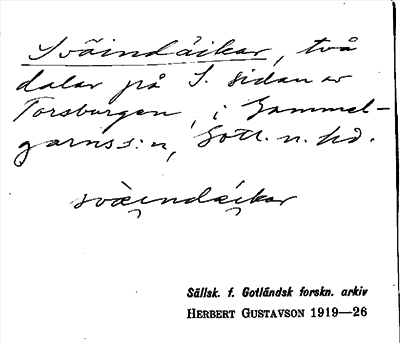 Svaindaikar, två
dalar på S. sidan av
Torsburgen, i Gammel-
garns s:n, Gotl. n. hd.
svaindaikar
Sällsk. f. Gotländsk forskn. arkiv
HERBERT GUSTAVSON 1919—26